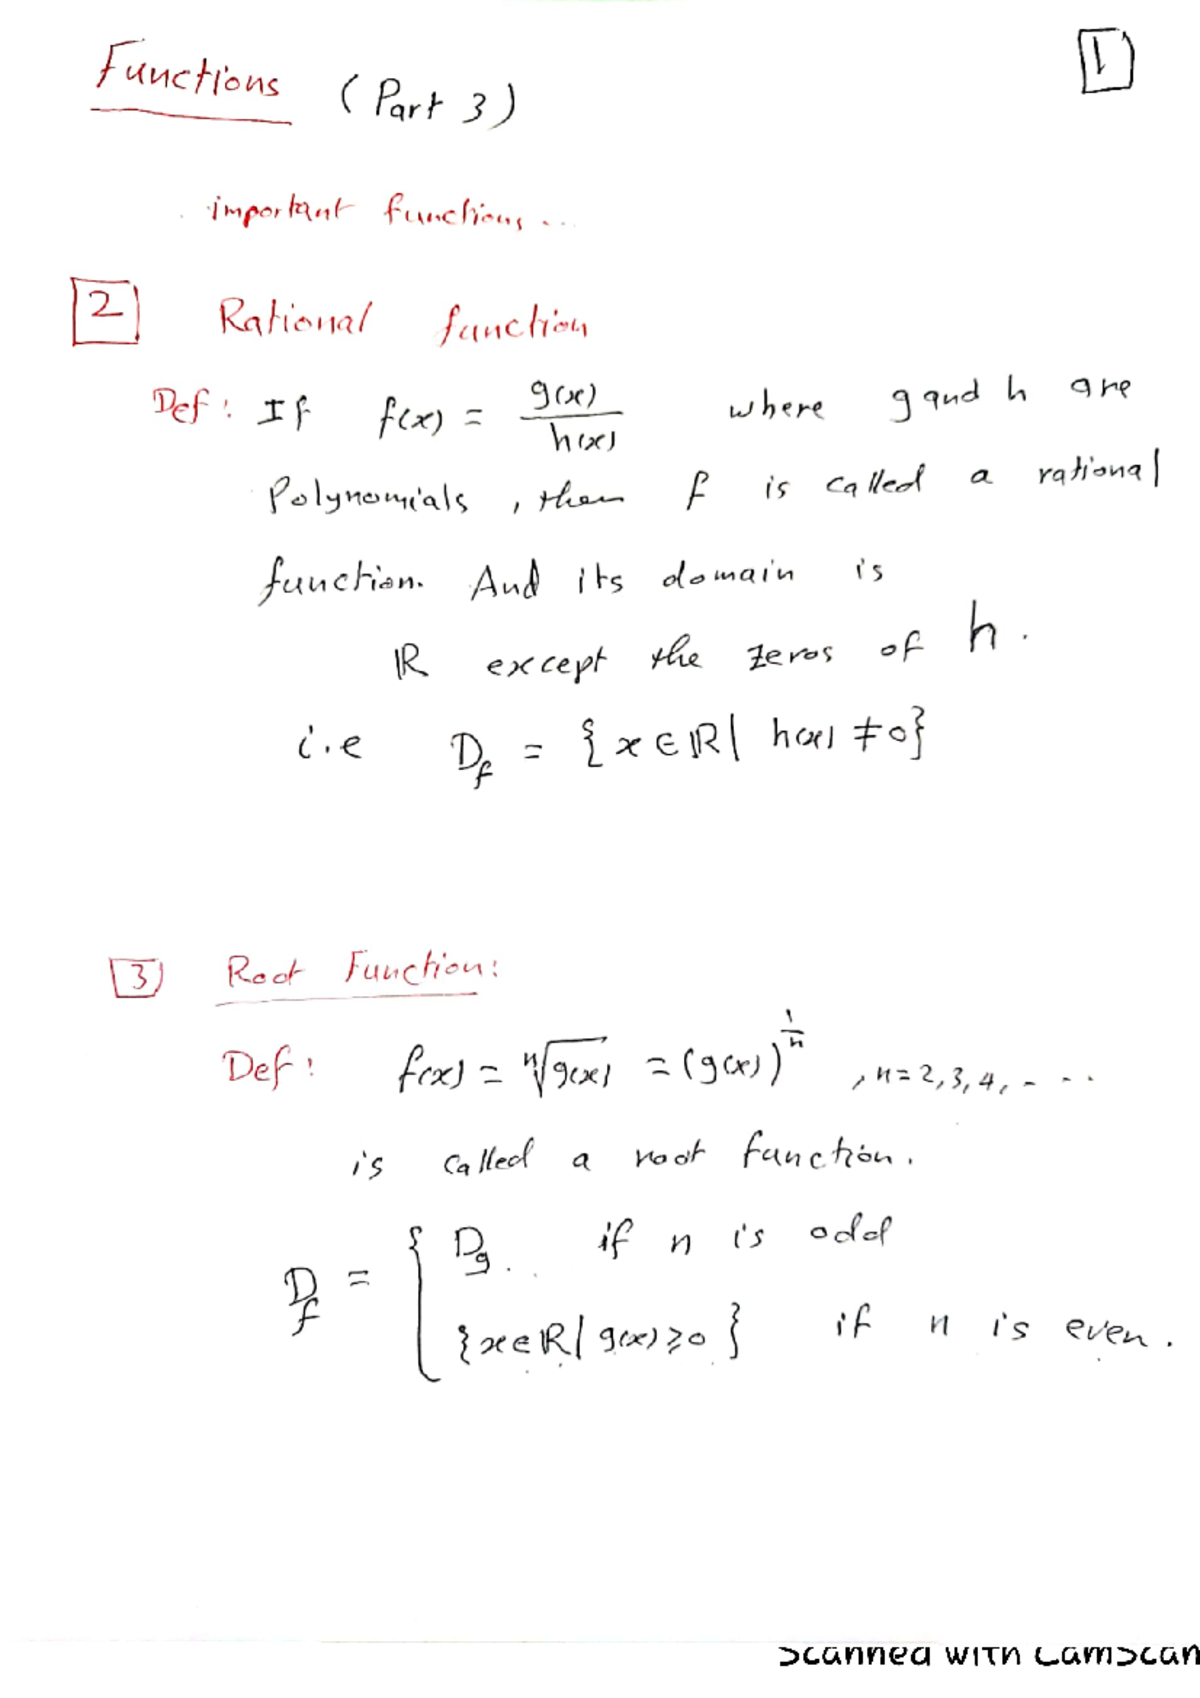 Functions (Part 3)
1
important functions...
2 Rational function
Def: If f(x) = g(x)/h(x) where g and h are
Polynomials, then f is called a rational
function. And its domain is
ℝ except the zeros of h.
i.e D_f = {x ∈ ℝ | h(x) ≠ 0}
3 Root Function:
Def: f(x) = ⁿ√g(x) = (g(x))^(1/n), n = 2, 3, 4, - - -
is called a root function.
D_f = { D_g. if n is odd
{x ∈ ℝ | g(x) ≥ 0} if n is even.
Scanned with CamScan